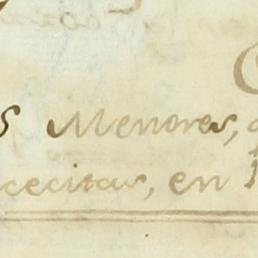 s Menores,
cecitas, en